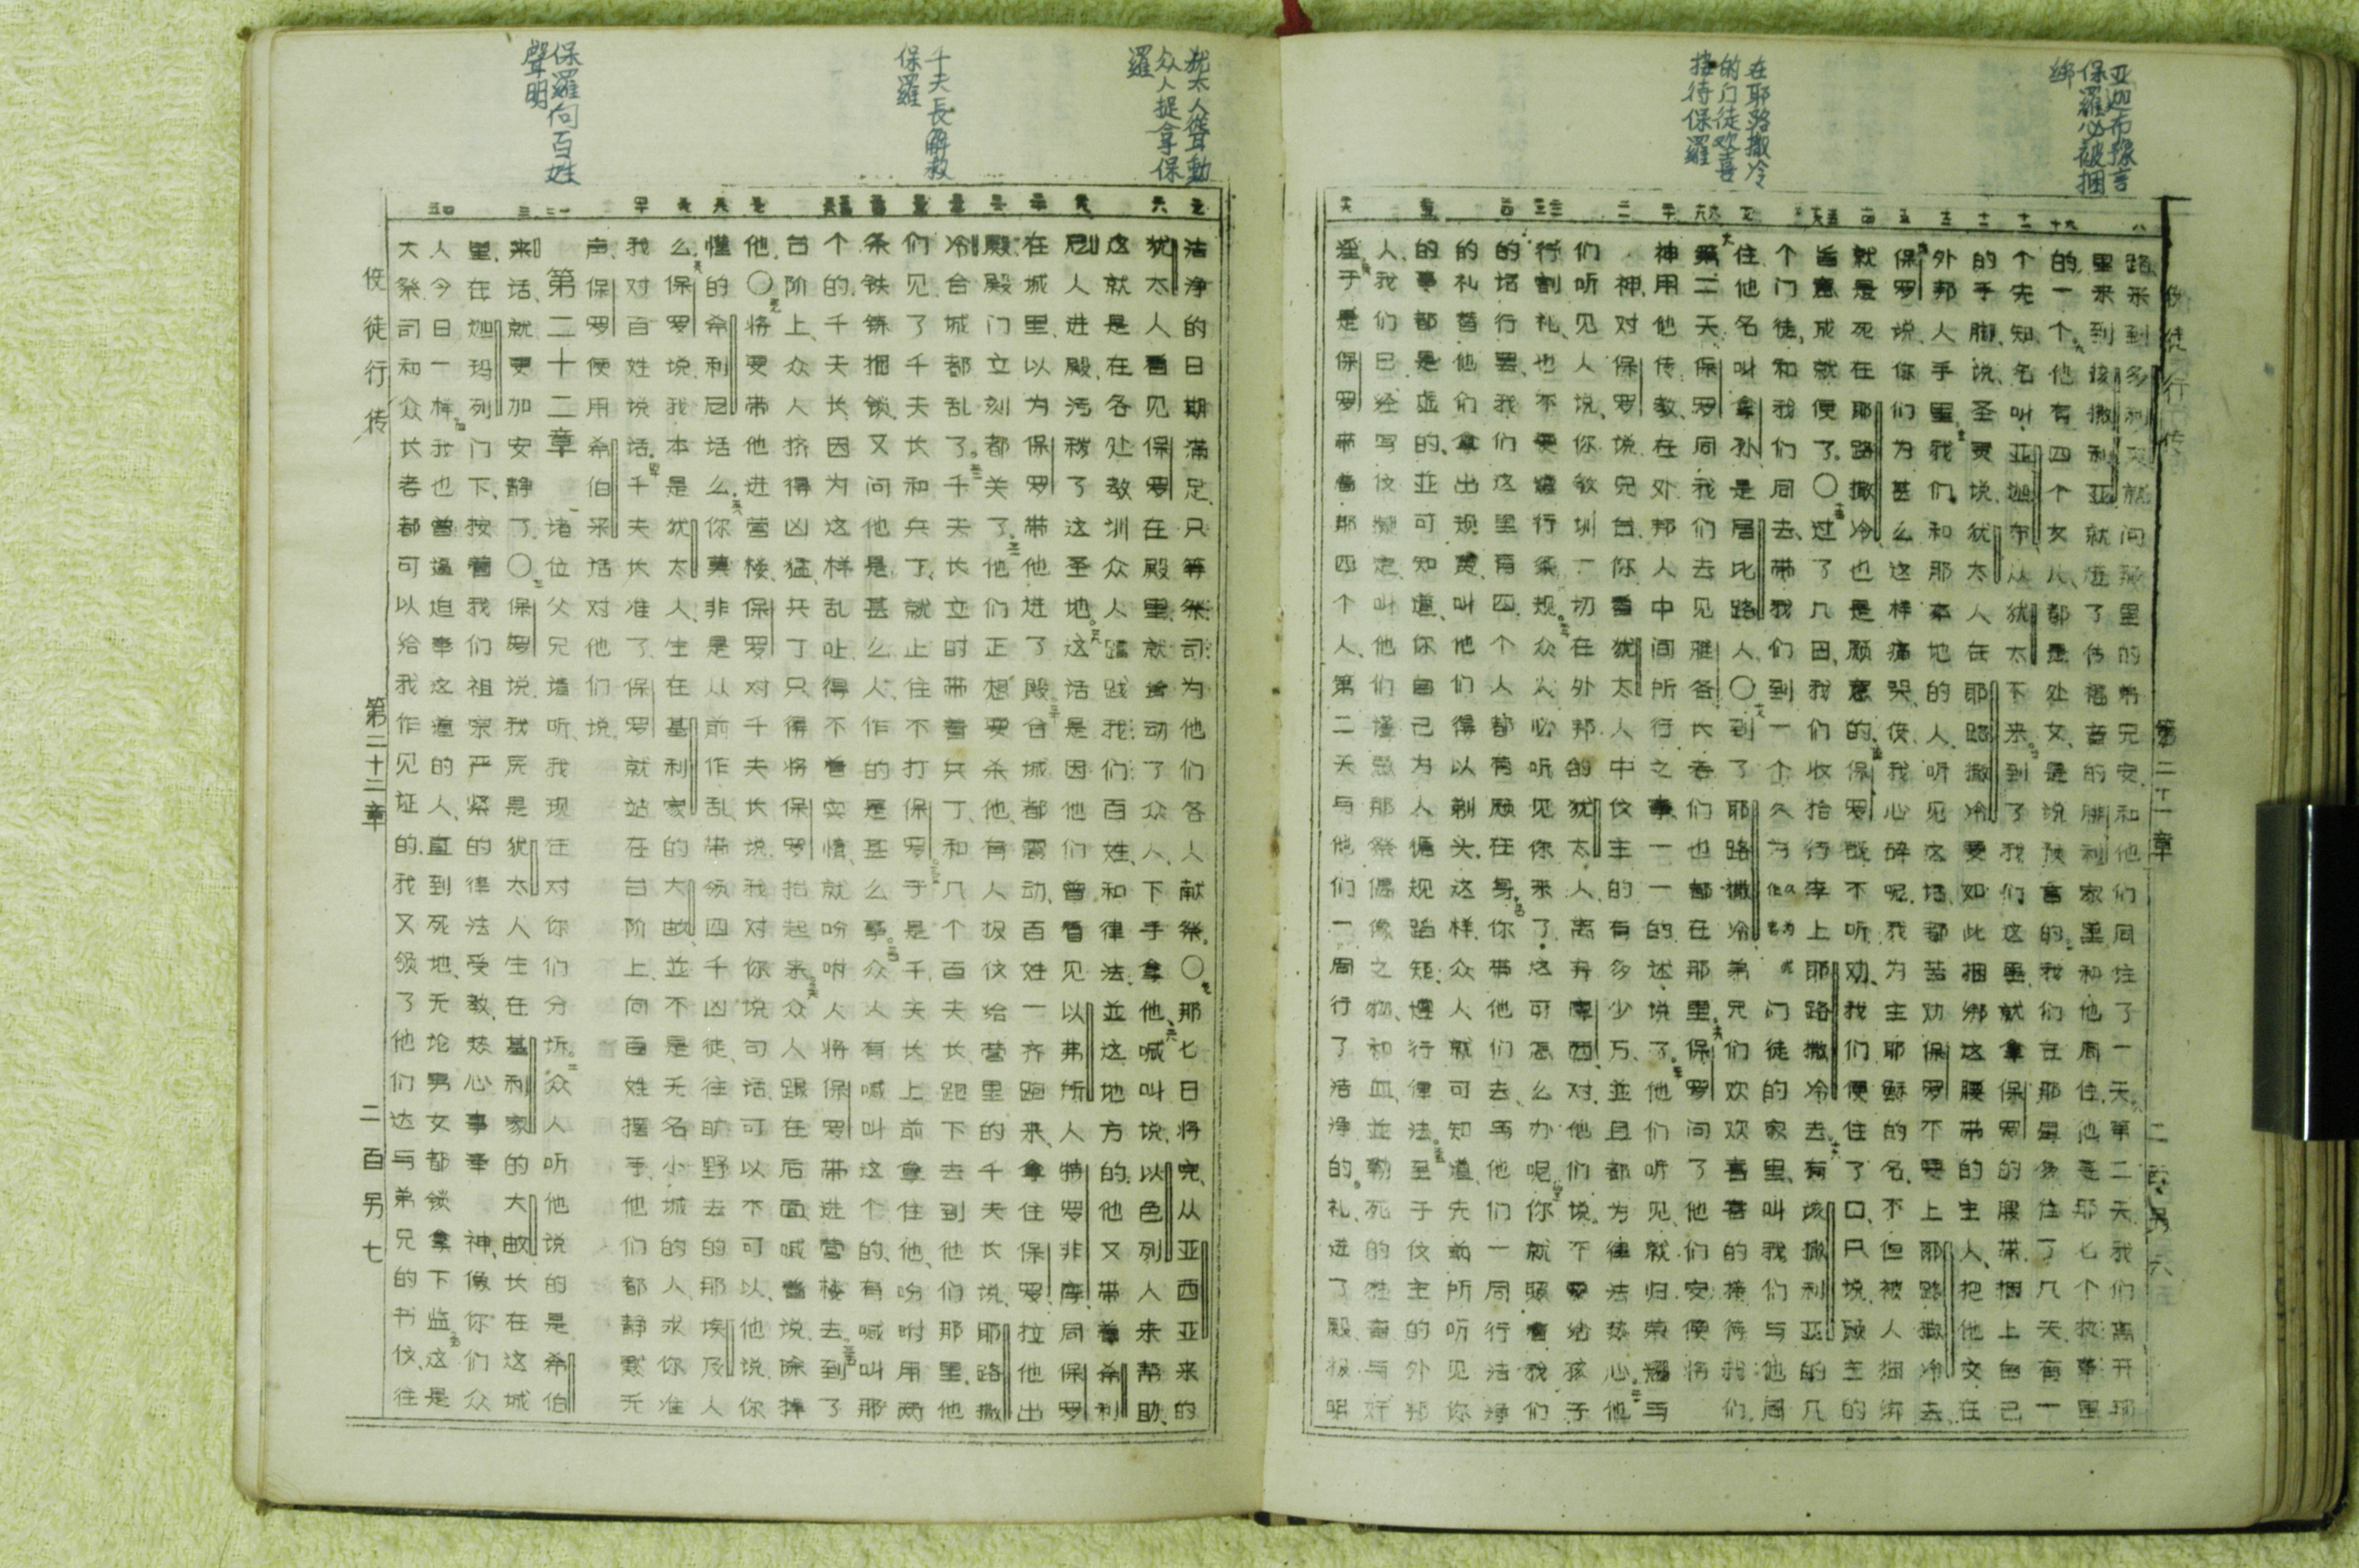 亚迦布豫言
保羅必被捆
綁
在耶路撒冷
的门徒欢喜
接待保羅
使徒行传 第二十一章 二百另六
路来到多利买就问那里的弟兄安、和他们同住了一天、第二天我们离开那
里来到该撒利亚就进了传福音的腓利家里和他同住、他是那七个执事里
的一个、他有四个女儿、都是处女、是说预言的、我们在那里多住了几天、有一
个先知、名叫亚迦布从犹太下来、到了我们这里就拿保罗的腰带捆上自己
的手脚、说、圣灵说、犹太人在耶路撒冷要如此捆绑这腰带的主人、把他交在
外邦人手里、我们和那本地的人、听见这话都苦劝保罗不要上耶路撒冷去、
保罗说、你们为甚么这样痛哭、使我心碎呢、我为主耶稣的名、不但被人捆绑
就是死在耶路撒冷也是愿意的、保罗既不听劝、我们便住了口、只说、愿主的
旨意成就便了。〇过了几日、我们收拾行李上耶路撒冷去、有该撒利亚的几
个门徒、和我们同去、带我们到一个久为门徒的家里、叫我们与他同
住、他名叫拿孙是居比路人、〇到了耶路撒冷弟兄们欢欢喜喜的接待我们
第二天、保罗同我们去见雅各、长老们也都在那里、保罗问了他们安、便将
神用他传教、在外邦人中间所行之事、一一的述说了、他们听见就归荣耀与
神、对保罗说、兄台、你看犹太人中信主的有多少万、並且都为律法热心、他
们听见人说、你教训一切在外邦的犹太人、离弃摩西、对他们说、不要给孩子
行割礼、也不要遵行条规、众人必听见你来了、这可怎么办呢、你就照着我们
的话行罢、我们这里有四个人、都有愿在身、你带他们去、与他们一同行洁净
的礼、替他们拿出规费、叫他们得以剃头、这样、众人就可知道、先前所听见你
的事都是虚的、亚可知道你自己为人循规蹈矩、遵行律法、至于信主的外邦
人、我们已经写信拟定叫他们谨忌那祭偶像之物、和血、並勒死的牲畜、与奸
淫、于是保罗带着那四个人、第二天与他们一同行了洁净的礼、进了殿、报明
犹太人耸動
众人捉拿保
羅
千夫長解救
保羅
保羅向百姓
聲明
洁净的日期满足、只等祭司为他们各人献祭。〇那七日将完、从亚西亚来的
犹太人看见保罗在殿里、就耸动了众人、下手拿他、喊叫说、以色列人来帮助、
这就是在各处教训众人蹧践我们百姓、和律法、並这地方的、他又带着希利
尼人进殿、污秽了这圣地、这话是因他们曾看见以弗所人特罗非摩同保罗
在城里、以为保罗带他进了殿、合城都震动、百姓一齐跑来、拿住保罗、拉他出
殿、殿门立刻都关了、他们正想要杀他、有人报信给营里的千夫长说、耶路撒
冷合城都乱了、千夫长立时带着兵丁、和几个百夫长、跑下去到他们那里、他
们见了千夫长和兵丁、就止住不打保罗于是千夫长上前拿住他、吩咐用两
条铁链捆锁、又问他是甚么人、作的是甚么事、众人有喊叫这个的、有喊叫那
个的、千夫长因为这样乱吐、得不着实情、就吩咐人将保罗带进营楼去、到了
台阶上、众人挤得凶猛、兵丁只得将保罗抬起来、众人跟在后面喊着说、除掉
他、〇将要带他进营楼、保罗对千夫长说、我对你说句话可以不可以、他说、你
懂的希利尼话么、你莫非是从前作乱带领四千凶徒、往旷野去的那埃及人
么、保罗说、我本是犹太人、生在基利家的大数並不是无名小城的人、求你准
我对百姓说话、千夫长准了、保罗就站在台阶上、向百姓摆手、他们都静默无
声、保罗便用希伯来话对他们说、
第二十二章 诸位父兄请听、我现在对你们分诉、众人听他说的是希伯
来话、就更加安静了。〇保罗说、我原是犹太人生在基利家的大数长在这城
里、在迦玛列门下、按着我们祖宗严紧的律法受教、热心事奉 神、像你们众
人今日一样、我也曾逼迫奉这道的人、直到死地、无论男女都锁拿下监、这是
大祭司和众长老都可以给我作见证的、我又领了他们达与弟兄的书信、往
使徒行传 第二十二章 二百另七